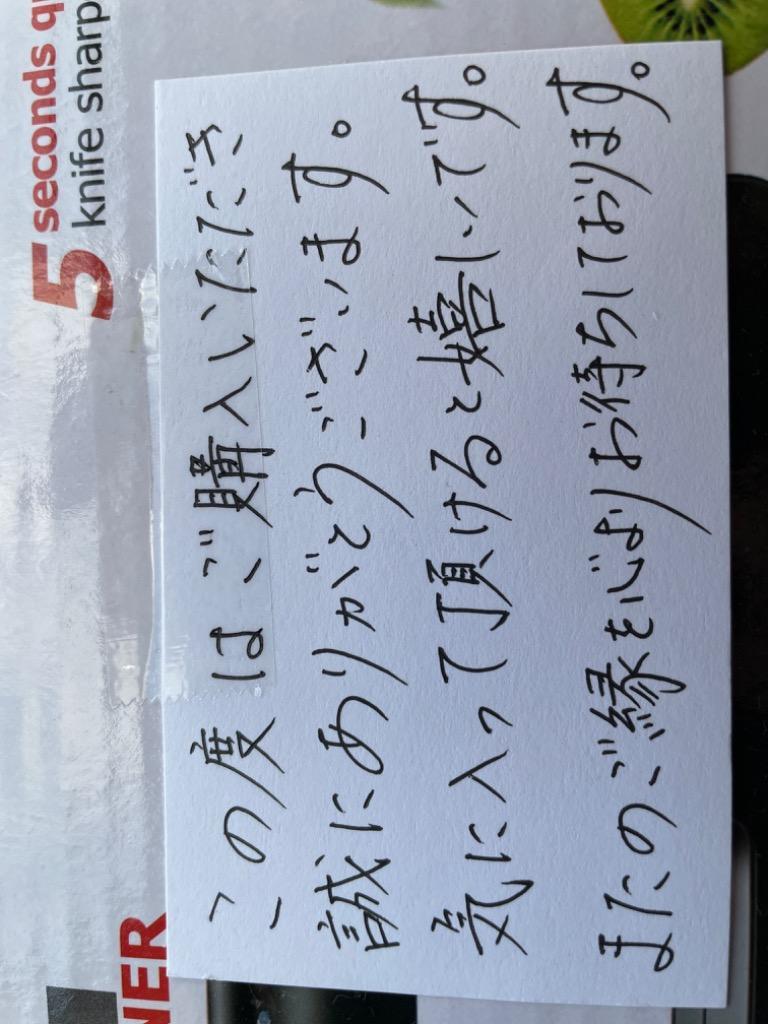 5 seconds
knife sharp
NER
この度はご購入いただき
誠にありがとうございます。
気に入って頂けると嬉いです。
またのご縁を心よりお待ちしております。